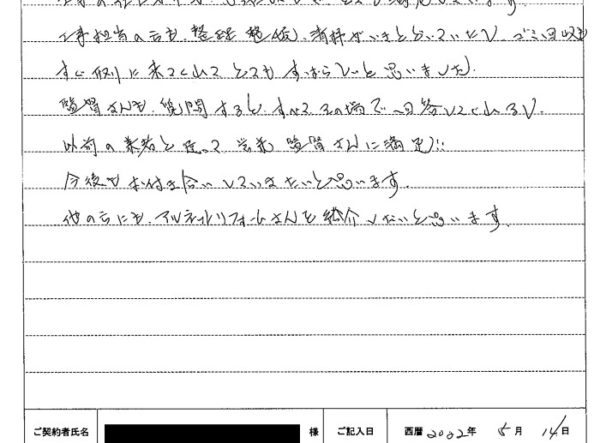 工事担当の方も、整理整頓、清掃がいきとどいていたし、ゴミ回収も
すぐ取りに来てくれてとてもすばらしいと思いました。
監督さんも、質問すると、すべてその場で回答してくれるし、
以前の業者と違って営業、監督さんに満足!!
今後もお付き合いしていきたいと思います。
他の方にも、アルネットリフォームさんを紹介したいと思います。
ご契約者氏名 様 ご記入日 西暦 2002年 5月 14日